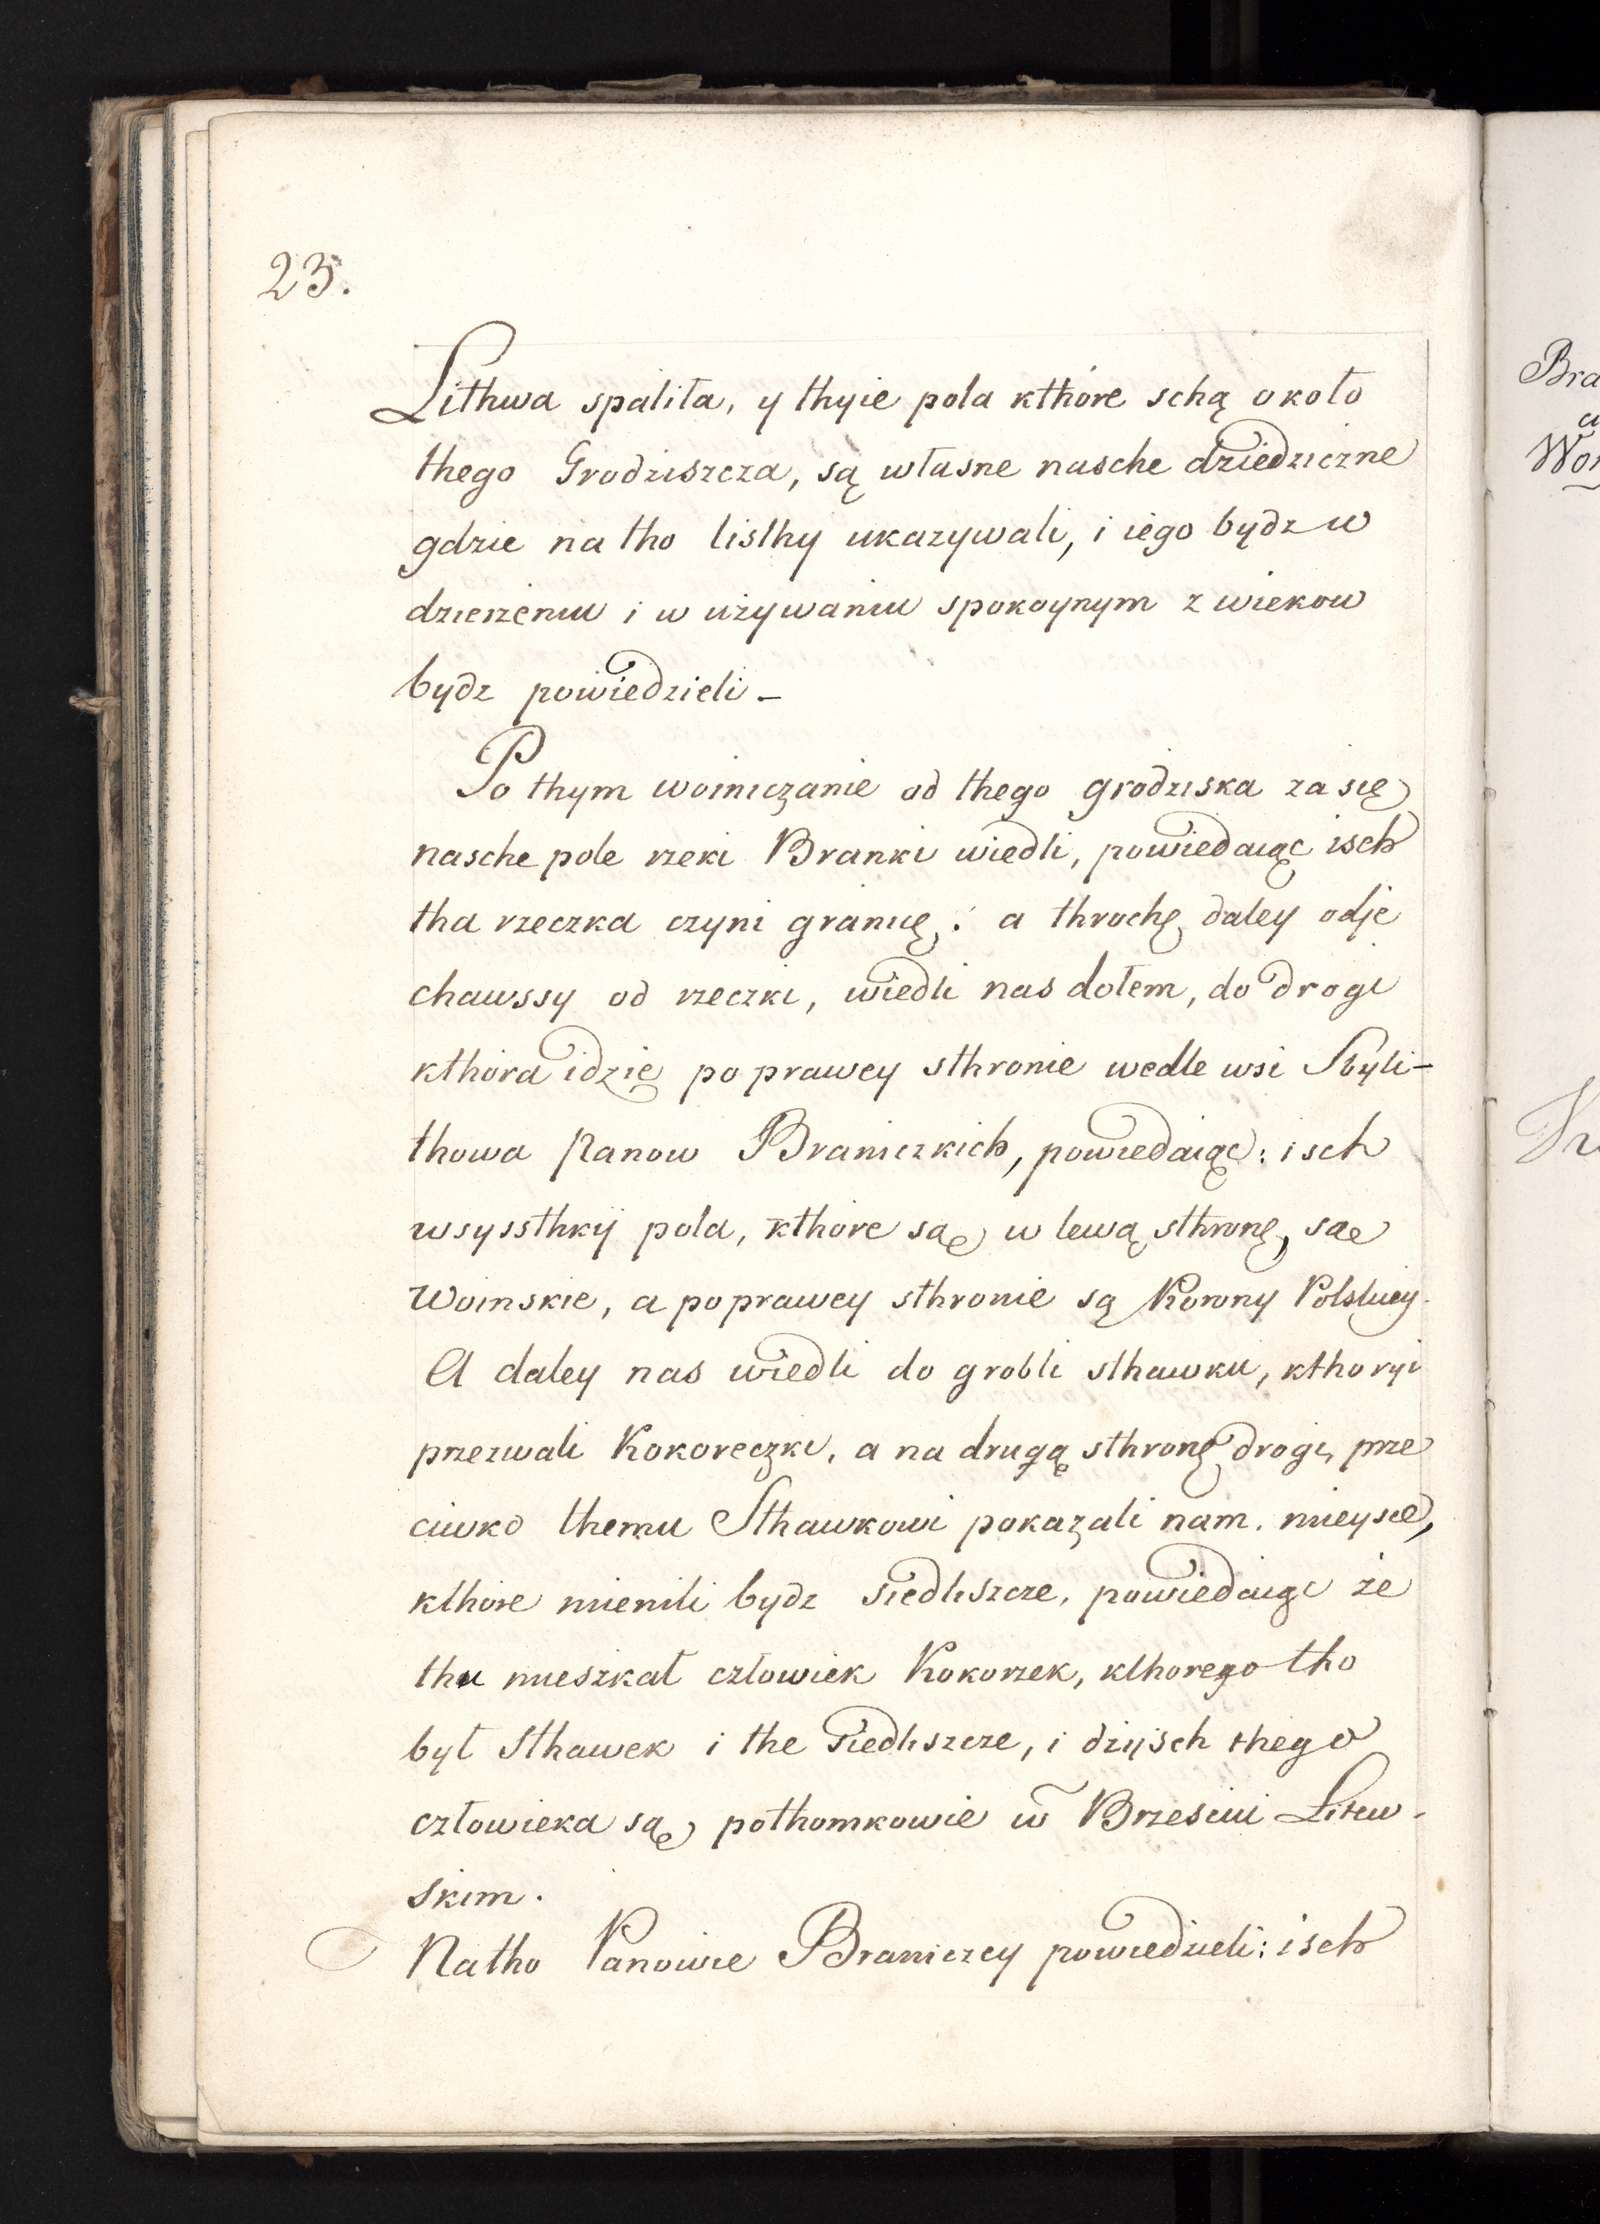 23.
Lithwa spaliła, y thyie pola kthóre schą około
thego Grodziszcza, są własne nasche dziedziczne
gdzie na tho listhy ukazywali, i iego bydz w
dzierżeniu i w używaniu spokoynym z wiekow
bydz powiedzieli –
Po thym woiniczanie od thego grodziska za się
nasche pole rzeki Branki wiedli, powiedaiąc isch
tha rzeczka czyni granicę: a throchę daley odje
chawssy od rzeczki, wiedli nas dołem, do drogi
kthora idzie po prawey sthronie wedle wsi Sbyli-
thowa Panow Braniczkich, powiedaiąc: isch
wsyssthkij pola, kthore sąe w lewą sthronę, sąe
Woinskie, a po prawey sthronie są Korony Polskiey.
A daley nas wiedli do grobli sthawku, kthoryi
przezwali Kokoreczki, a na drugą sthronę drogi, prze
ciwko themu Sthawkowi pokazali nam. mieysce,
kthore mienili bydz siedliszcze, powiedaiąc że
thu mieszkał człowiek Kokorzek, kthorego tho
był Sthawek i the siedliszcze, i dzijsch thego
człowieka sąe pothomkowie w Brzesciu Litew-
skim.
Natho Panowie Braniczcy powiedzieli: isch
Bra
Wor